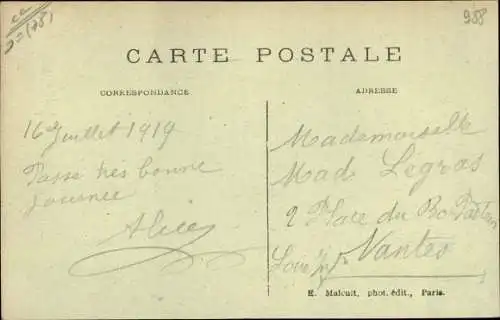 (78)
988
CARTE POSTALE
CORRESPONDANCE
16 Juillet 1919
Passé très bonne
journée
Alice
ADRESSE
Mademoiselle
Mad Legras
2 Place du
Nantes
Loire Infre
E. Malcuit, phot. édit., Paris.